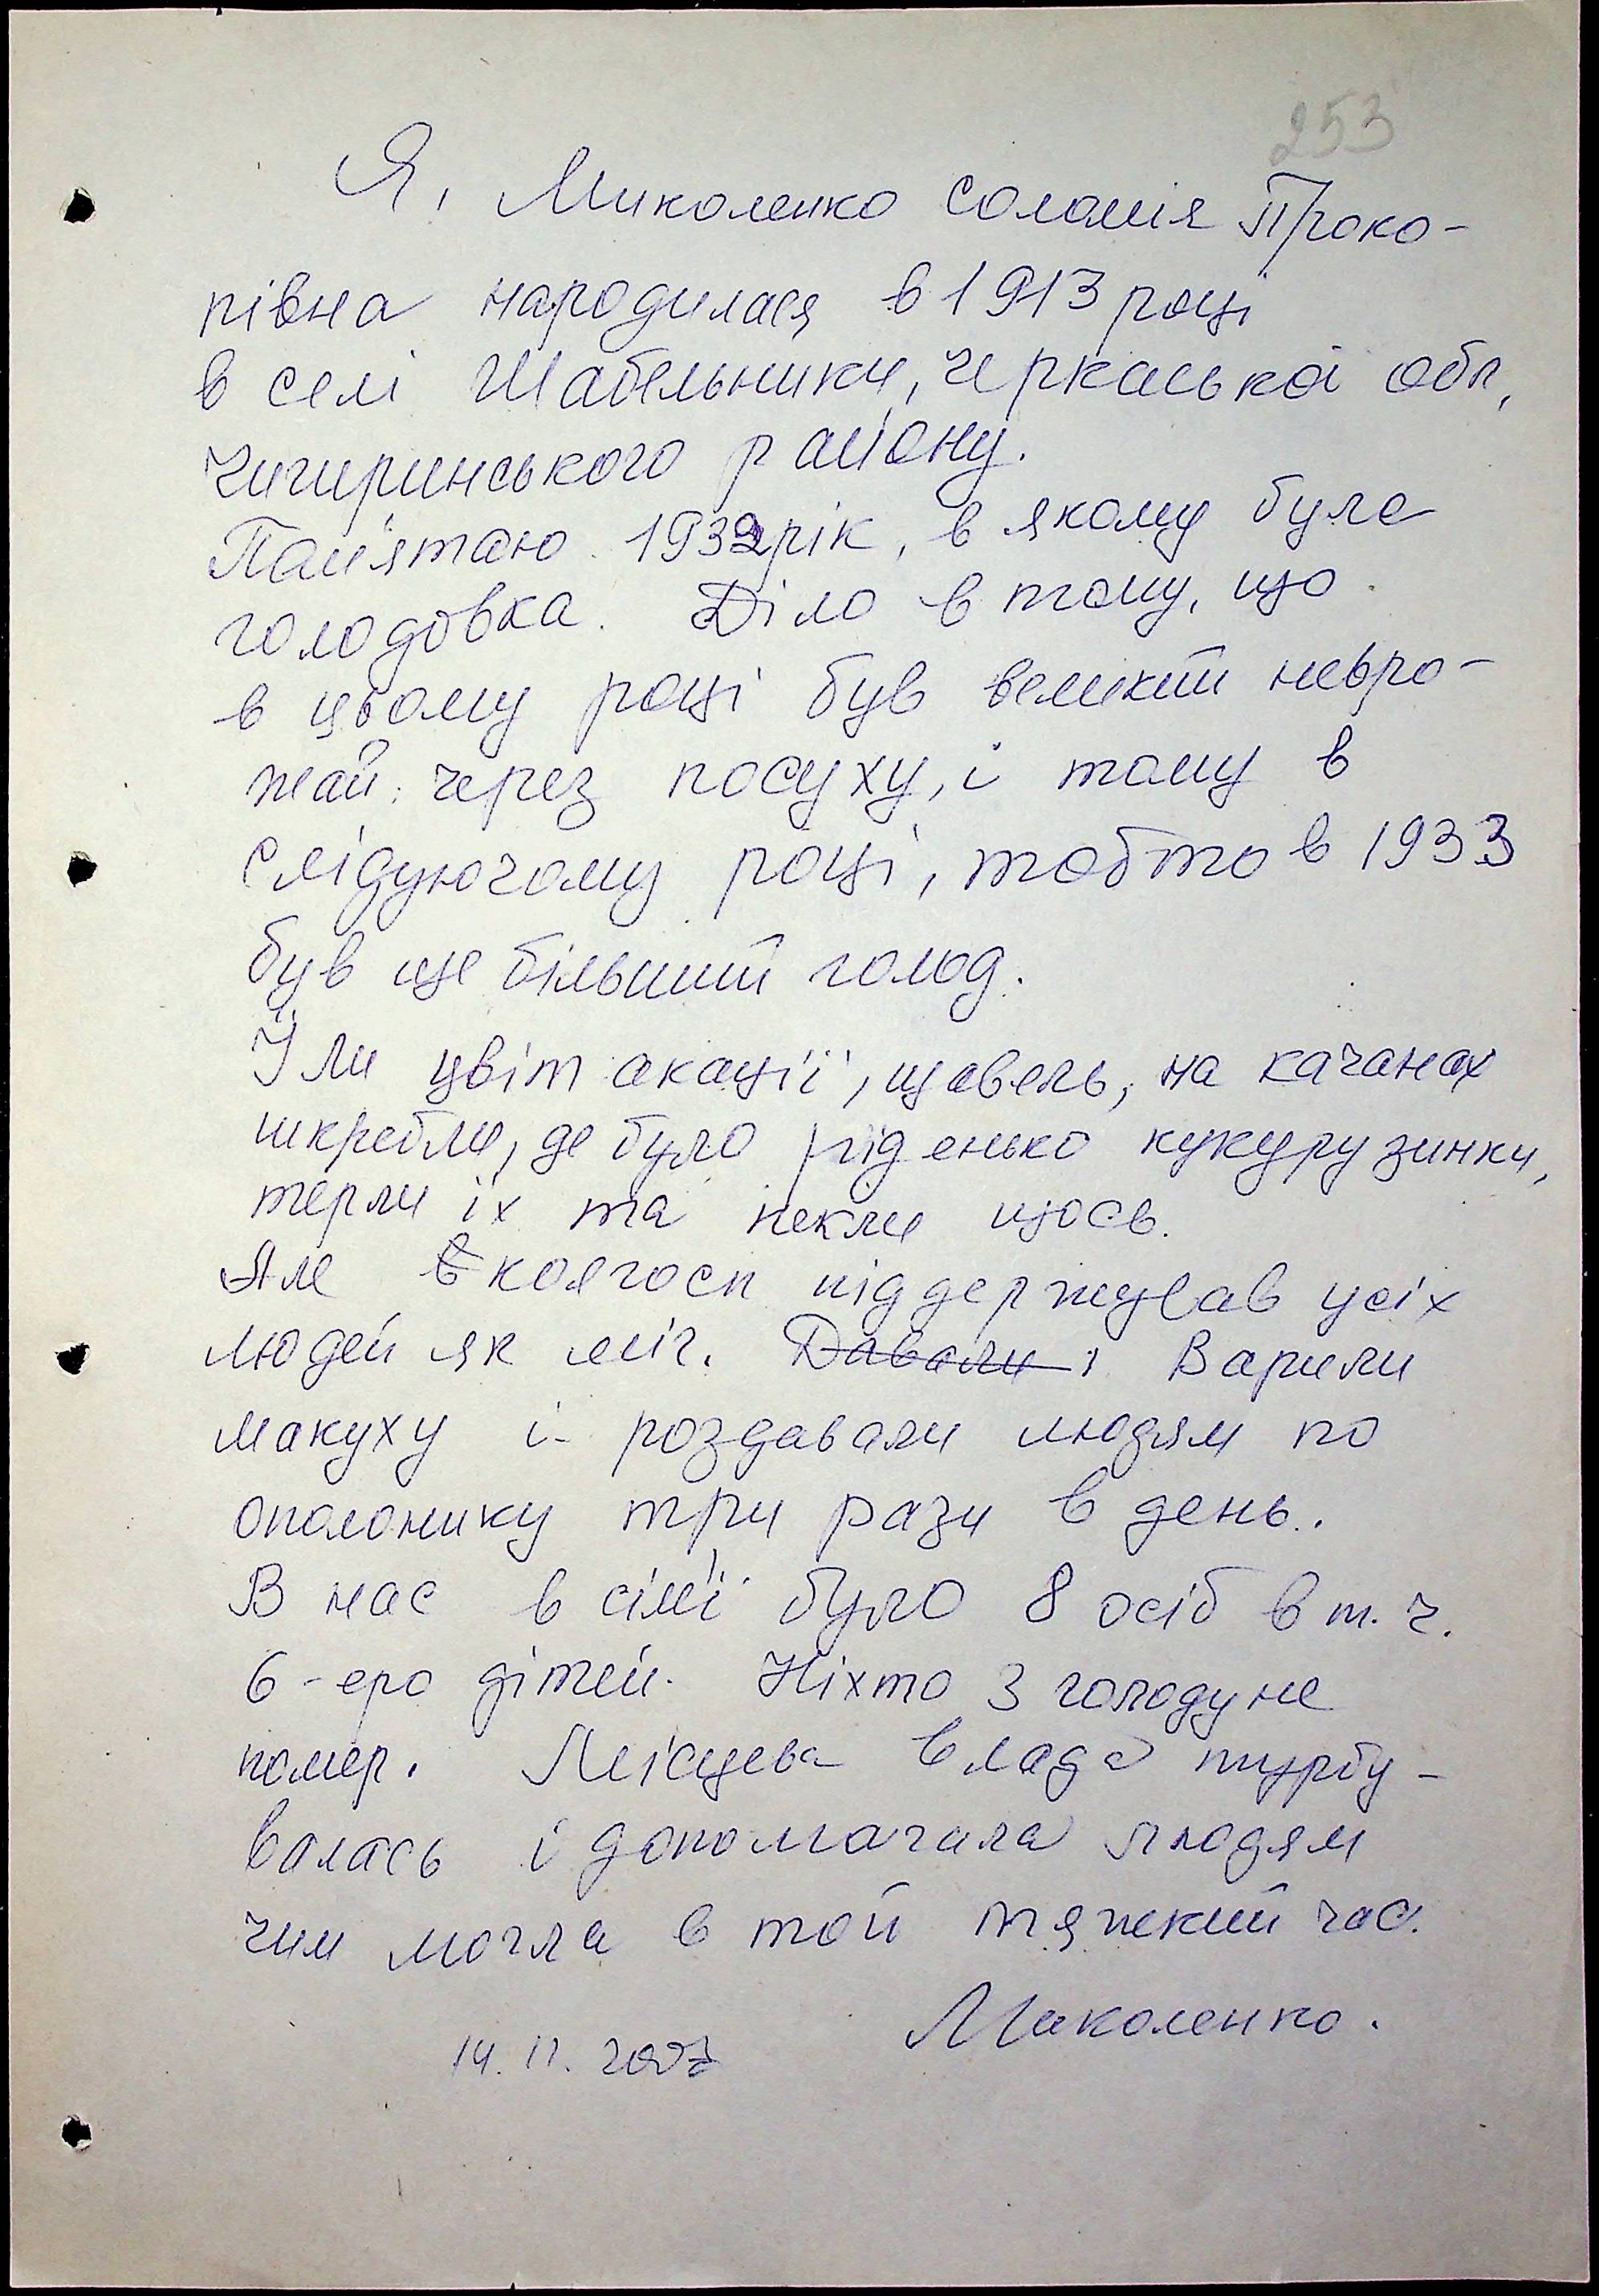 253
Я, Миколенко Соломія Проко-
півна народилася в 1913 році
в селі Шабельники, Черкаської обл,
Чигиринського району.
Пам'ятаю 1932 рік, в якому була
голодовка. Діло в тому, що
в цьому році був великий невро-
жай через посуху, і тому в
слідуючому році, тобто в 1933
був ще більший голод.
Їли цвіт акації, щавель, на качанах
шкребли, де було ріденько кукурузинки,
терли їх та пекли щось.
Але в колгосп піддержував усіх
людей як міг. Давали і Варили
макуху і роздавали людям по
ополонику три рази в день.
В нас в сім'ї було 8 осіб в т. ч.
6-еро дітей. Ніхто з голоду не
помер. Місцева влада турбу-
валась і допомагала людям
чим могла в той тяжкий час.
Миколенко.
14. 11. 2007